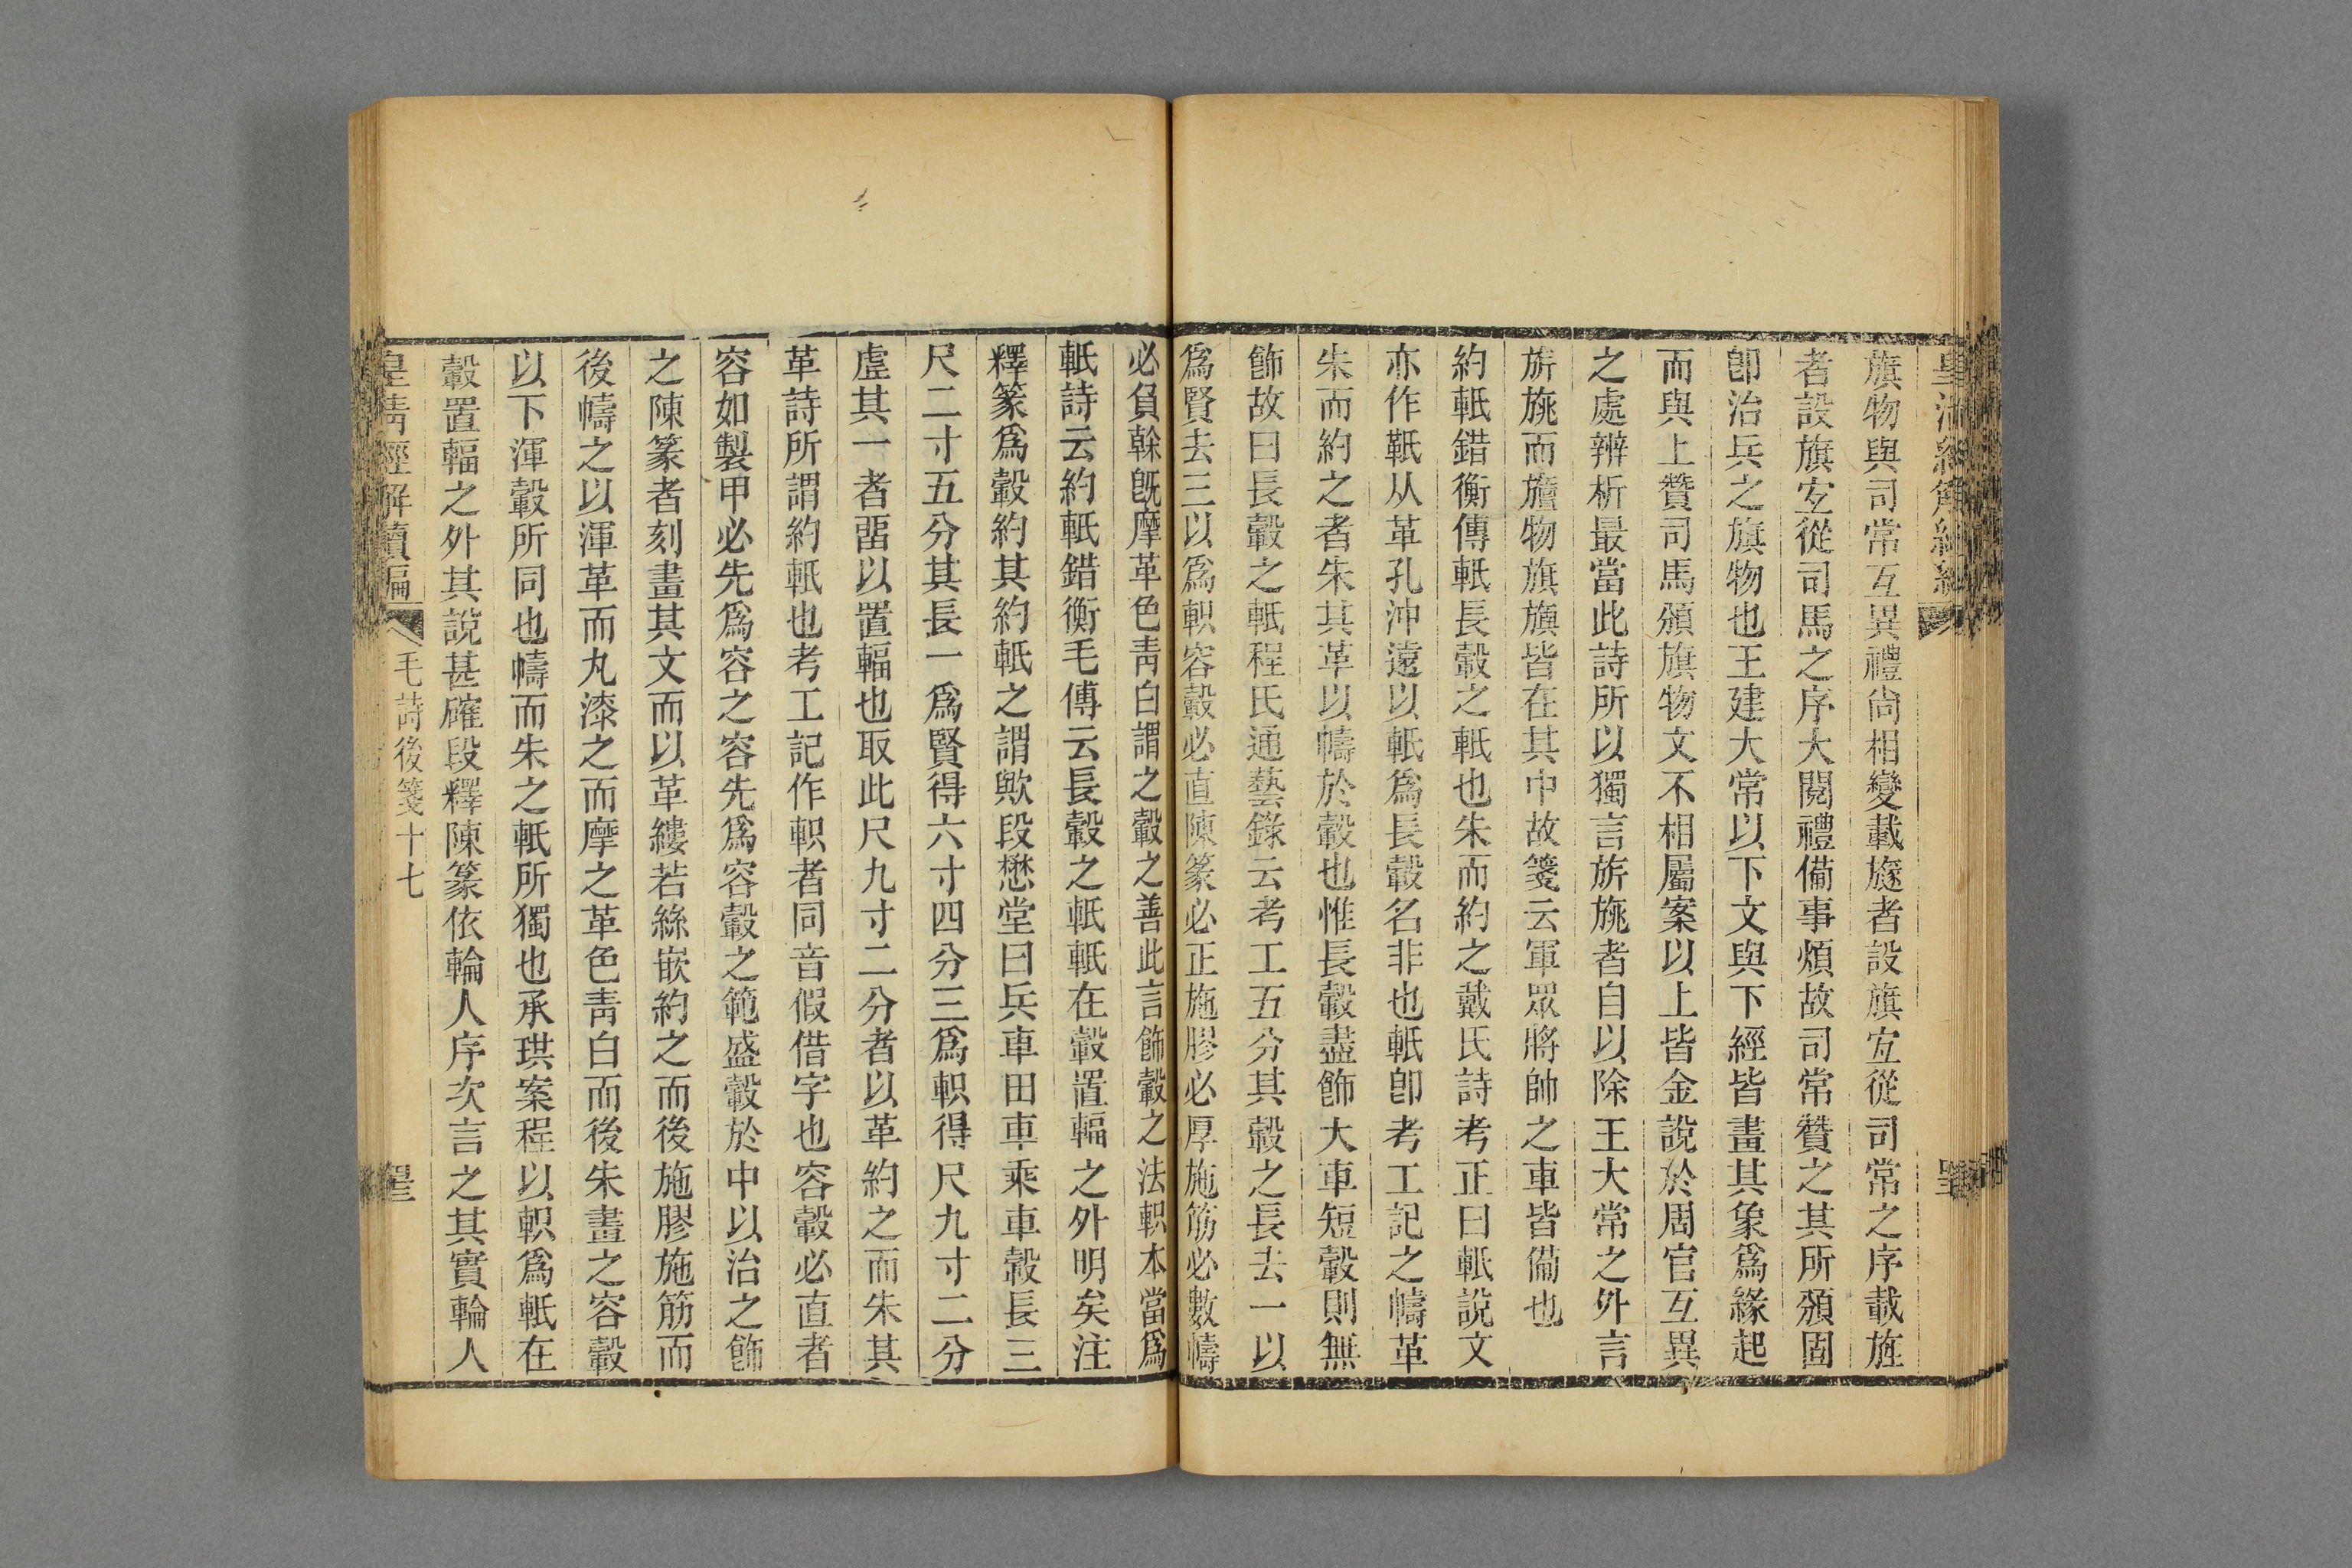 旗物與司常互異禮尙相變載旞者設旗宐從司常之序載旌
者設旗宐從司馬之序大閱禮備事煩故司常贊之其所頒固
卽治兵之旗物也王建大常以下文與下經皆畫其象爲緣起
而與上贊司馬頒旗物文不相屬案以上皆金說於周官互異
之處辨析最當此詩所以獨言旂旐者自以除王大常之外言
旂旐而旜物旗旟皆在其中故箋云軍眾將帥之車皆備也
約軝錯衡傳軝長轂之軝也朱而約之戴氏詩考正曰軝說文
亦作𩉬从革孔沖遠以軝爲長轂名非也軝卽考工記之幬革
朱而約之者朱其革以幬於轂也惟長轂盡飾大車短轂則無
飾故曰長轂之軝程氏通藝錄云考工五分其轂之長去一以
爲賢去三以爲軹容轂必直陳篆必正施膠必厚施筋必數幬
必負榦旣摩革色靑白謂之轂之善此言飾轂之法軹本當爲
軝詩云約軝錯衡毛傳云長轂之軝軝在轂置輻之外明矣注
釋篆爲轂約其約軝之謂歟段懋堂曰兵車田車乘車轂長三
尺二寸五分其長一爲賢得六寸四分三爲軹得尺九寸二分
虛其一者畱以置輻也取此尺九寸二分者以革約之而朱其
革詩所謂約軝也考工記作軹者同音假借字也容轂必直者
容如製甲必先爲容之容先爲容轂之範盛轂於中以治之飾
之陳篆者刻畫其文而以革縷若絲嵌約之而後施膠施筋而
後幬之以渾革而丸漆之而摩之革色靑白而後朱畫之容轂
以下渾轂所同也幬而朱之軝所獨也承珙案程以軹爲軝在
轂置輻之外其說甚確段釋陳篆依輪人序次言之其實輪人
皇淸經解續編
毛詩後箋十七